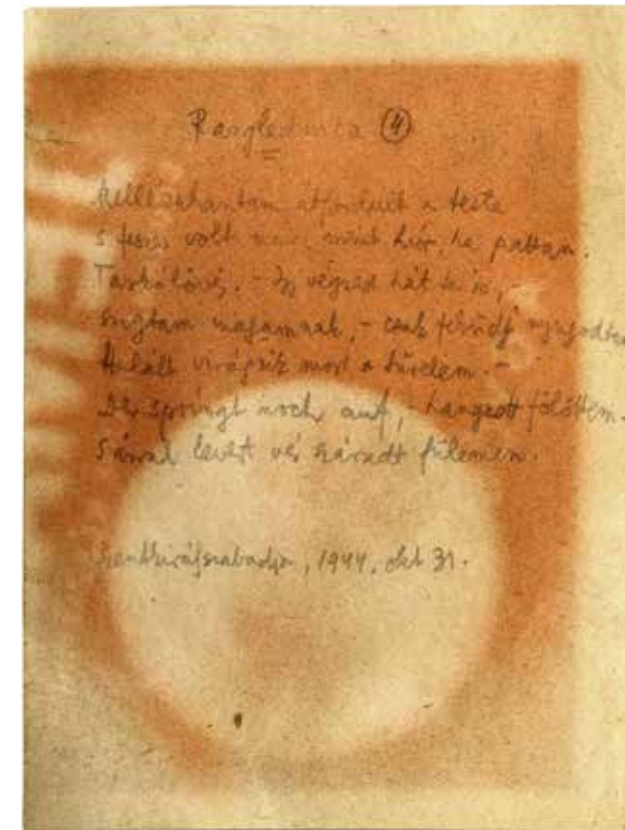 Razglednica (4)
Mellézuhantam, átfordult a teste
s feszes volt már, mint húr, ha pattan.
Tarkólövés. - Igy végzed hát te is, -
súgtam magamnak, - csak feküdj nyugodtan.
Halált virágzik most a türelem. -
Der springt noch auf, - hangzott fölöttem.
Sárral kevert vér száradt fülemen.
Szentkirályszabadja, 1944. okt 31.